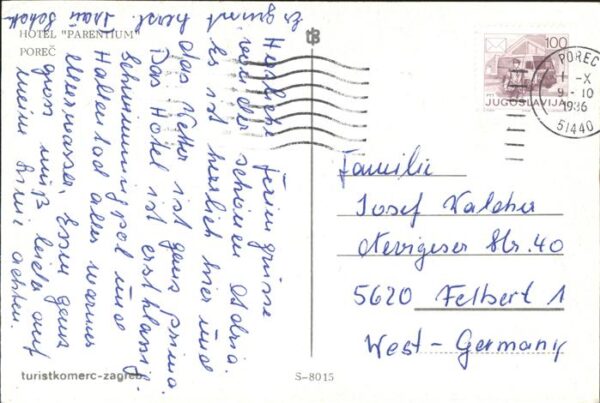 HOTEL "PARENTIUM"
POREČ
Herzliche Feriengrüsse
von der schönen Adria.
Es ist herrlich hier und
das Wetter ist ganz prima.
Das Hotel ist erstklassig.
Schwimmingpol und
Hallenbad alles warmes
Meerwasser. Essen ganz
gross muß leider auf
meine Linie achten.
Es grüsst
herzl.
100
JUGOSLAVIJA
POREČ
1-X
9-10
1986
51440
Familie
Josef Walcher
Nevigeser Str. 40
5620 Felbert 1
West-Germany
turistkomerc-zagreb
S-8015